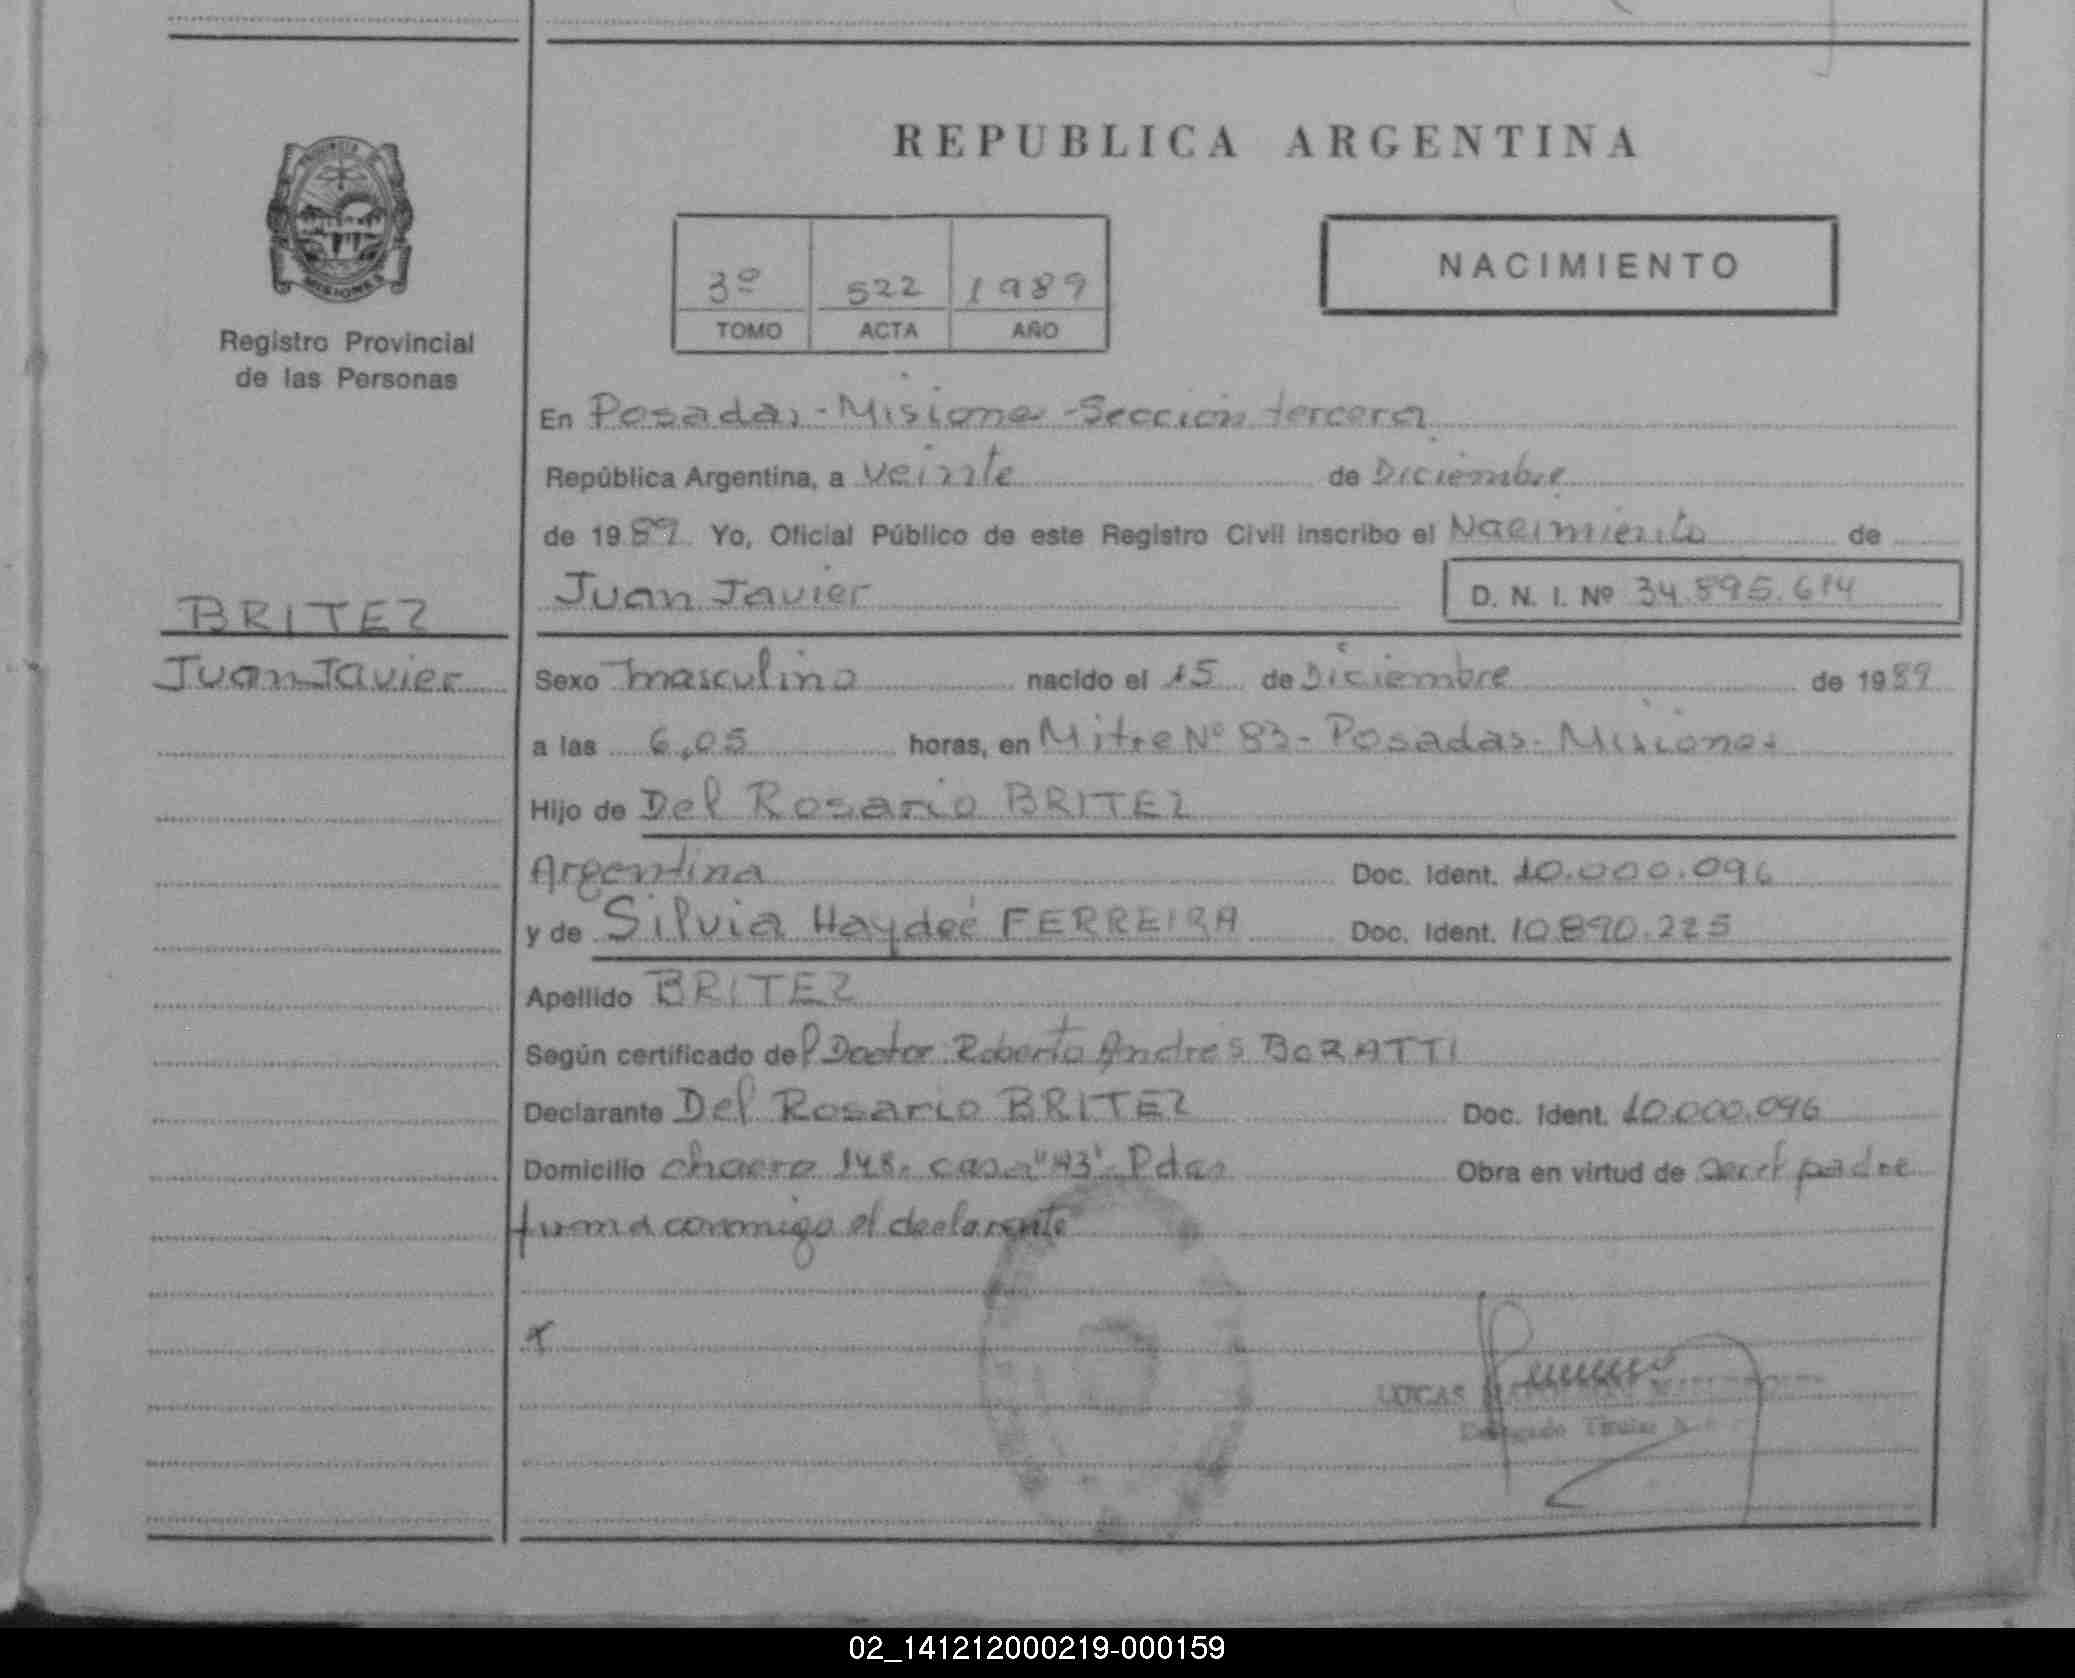 REPUBLICA ARGENTINA
PROVINCIA DE MISIONES
Registro Provincial
de las Personas
3º 522 1989
TOMO ACTA AÑO
NACIMIENTO
En Posadas - Misiones - Sección tercera
República Argentina, a veinte de Diciembre
de 1989 Yo, Oficial Público de este Registro Civil inscribo el Nacimiento de
Juan Javier D. N. I. Nº 34.895.614
BRITEZ
Juan Javier
Sexo masculino nacido el 15 de Diciembre de 1989
a las 6,05 horas, en Mitre Nº 83 - Posadas - Misiones
Hijo de Del Rosario BRITEZ
Argentina Doc. Ident. 10.000.096
y de Silvia Haydeé FERREIRA Doc. Ident. 10.890.225
Apellido BRITEZ
Según certificado del Doctor Roberto Andrés BORATTI
Declarante Del Rosario BRITEZ Doc. Ident. 10.000.096
Domicilio chacra 148. casa "43". Pdas Obra en virtud de ser el padre
firma conmigo el declarante
x
LUCAS
Delegado Titular
02_141212000219-000159